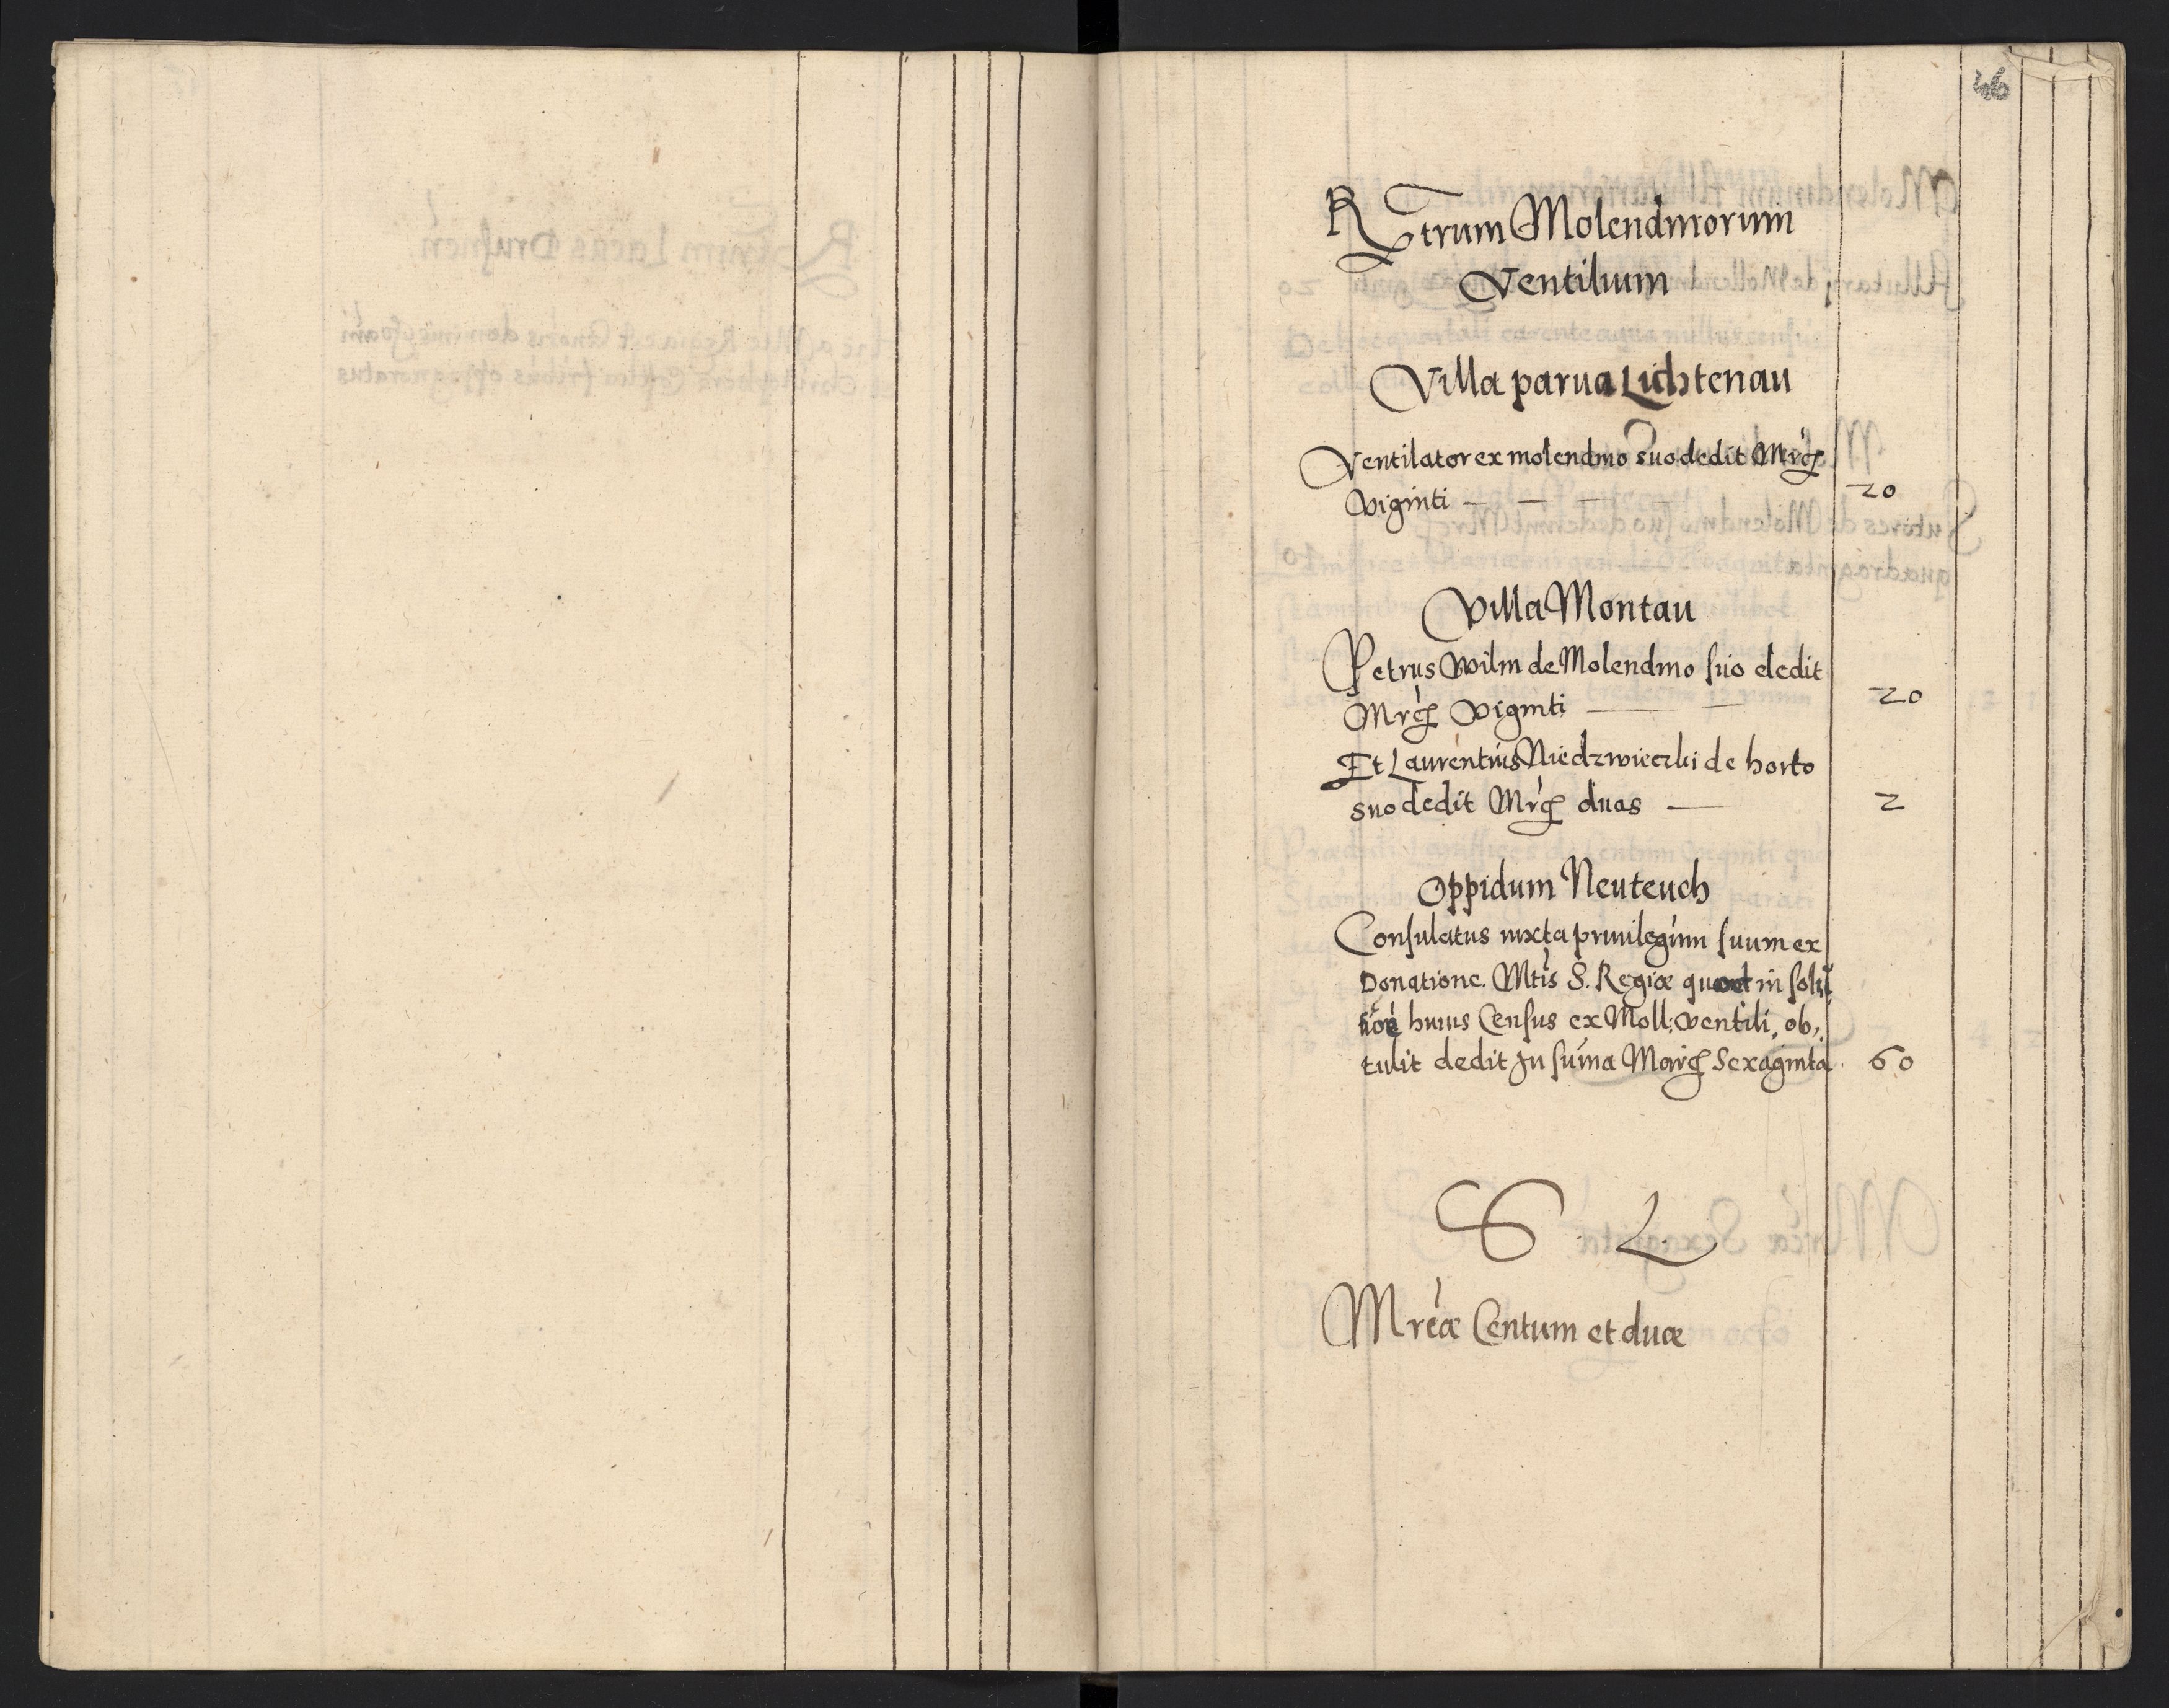 46
Rttrum Molendinorum
Ventilium
Villa parua Lichtenau
Ventilator ex molendino suo dedit Mrcę
Viginti — — — —
20
Villa Montau
Petrus Wilm de Molendino suo dedit
Mrcę Viginti — —
20
Et Laurentius Niedzwieczki de horto
suo dedit Mrcę duas —
2
Oppidum Neuteuch
Consulatus iuxta priuilegium suum ex
Donatione Mtis S. Regiæ quod in solu
huius Census ex Moll: Ventili, ob,
tulit dedit In suma Marcę Sexaginta
60
S L
Mrcæ Centum et duæ